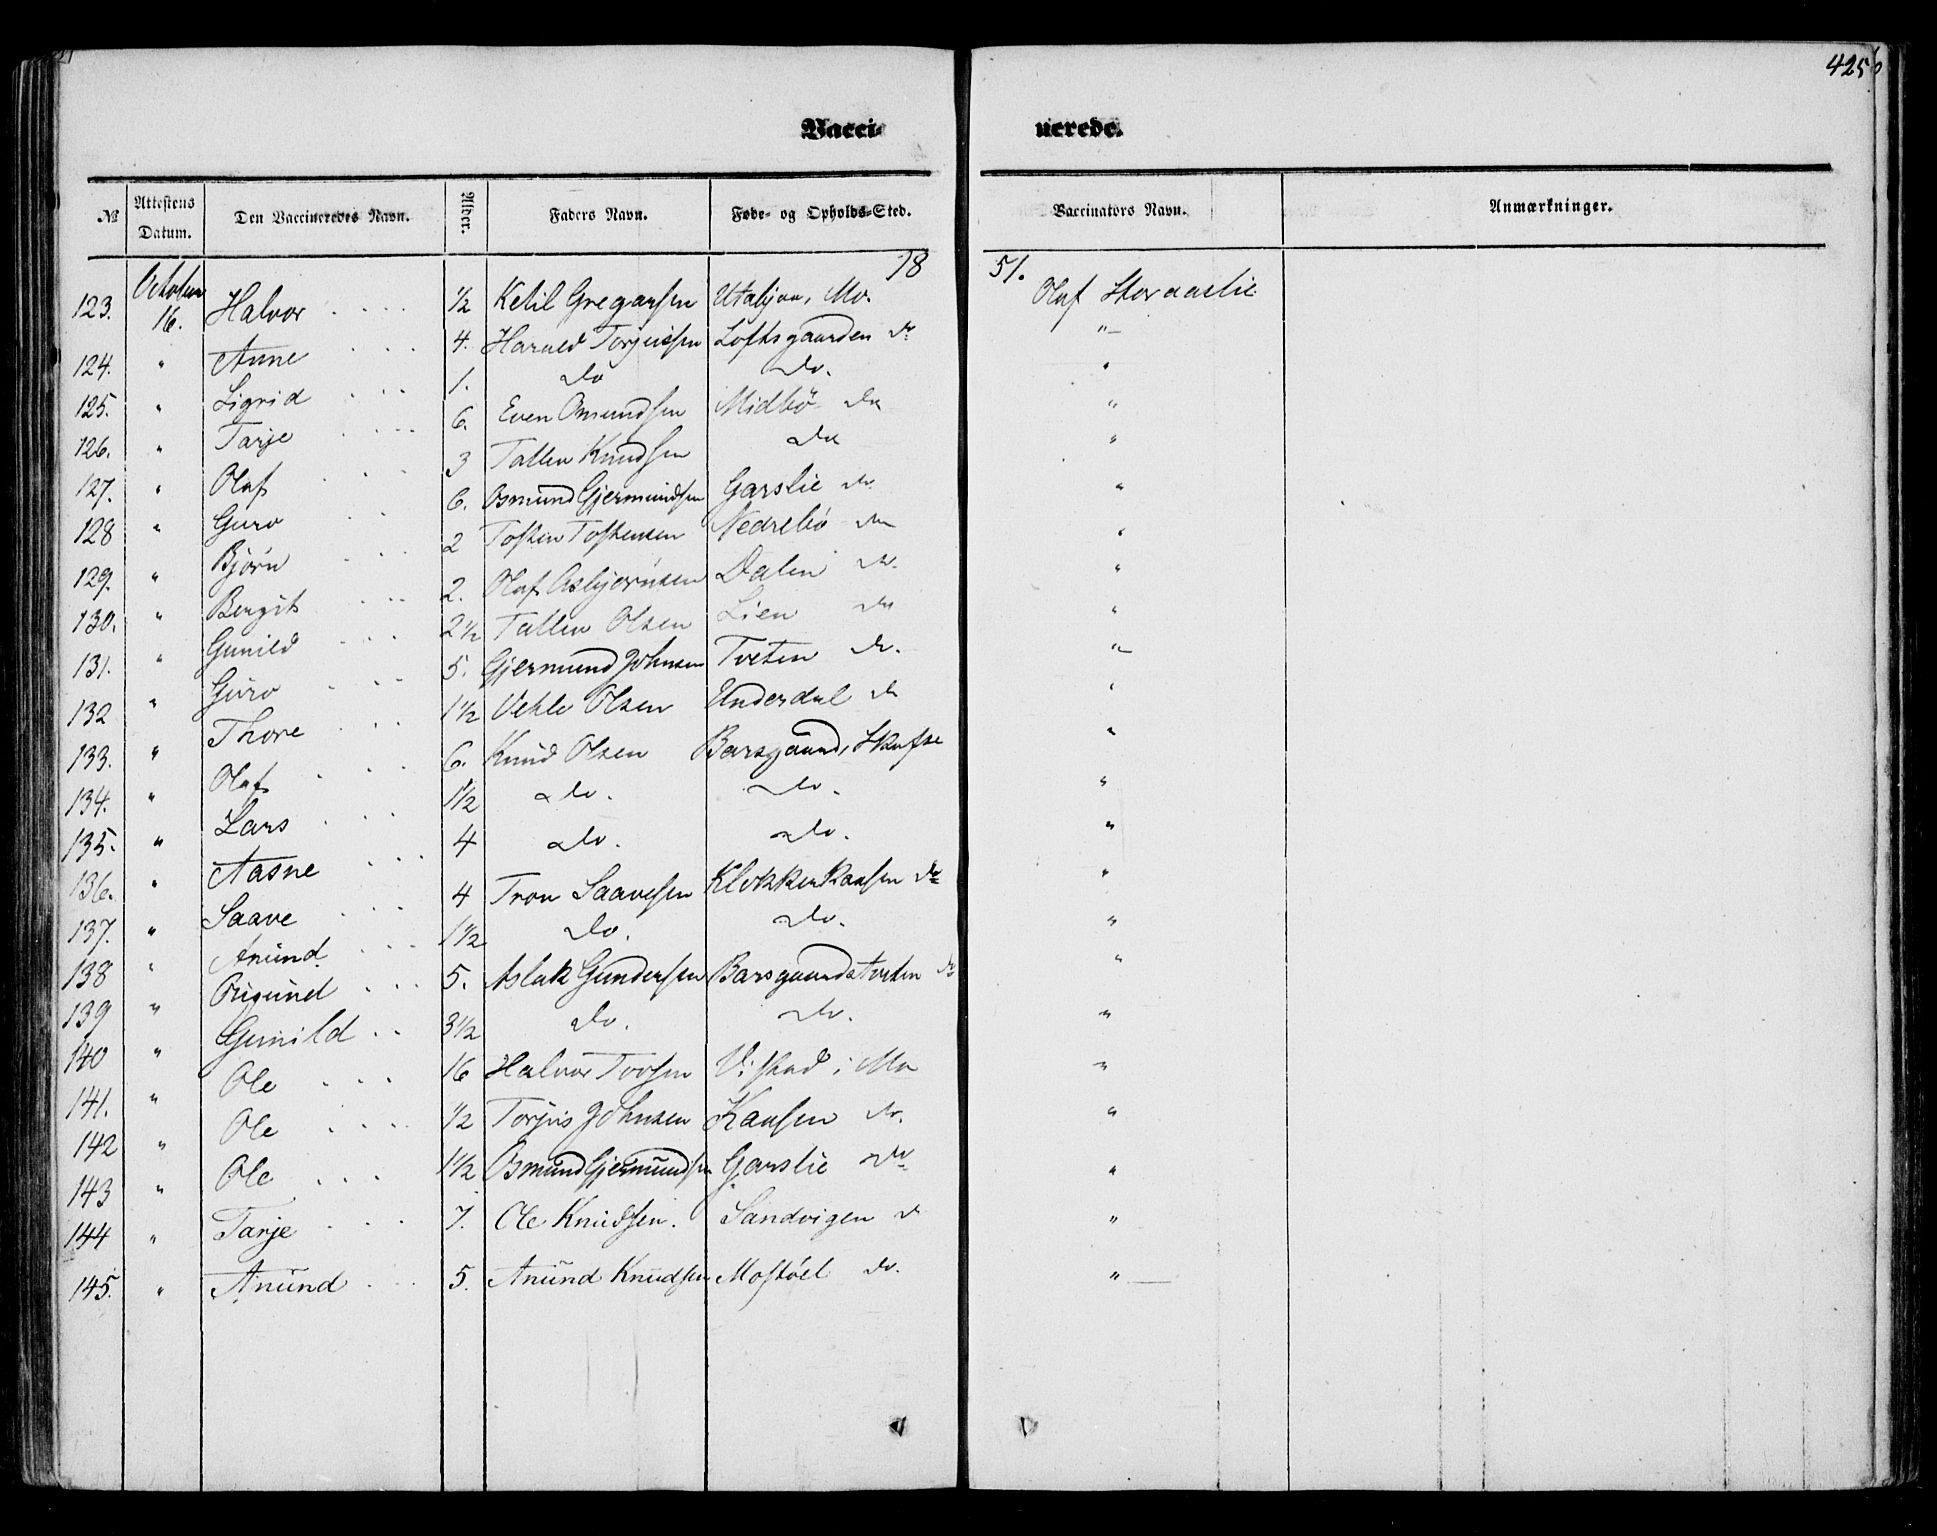 425
Vacci- nerede.
№ Attestens Datum. Den Vaccineredes Navn. Alder. Faders Navn. Føde- og Opholds-Sted. Vaccinators Navn. Anmærkninger.
18 51.
123. October 16. Halvor . . . . ½ Ketil Gregarsen Utabjaa, Mo. Olaf Storaaslie
124. " Anne . . . 4. Harald Torjussen Loftsgaarden do "
125. " Sigrid . . . 1. do do. "
126. " Tarje . . . 6. Even Omundsen Midbö do "
127. " Olaf . . 3 Tallen Knudsen do "
128 " Guro . . 6. Osmund Gjermundsen Garslie do "
129. " Björn . . . 2 Tosten Tostensen Nedrebö do "
130. " Bergit . . . 2. Olaf Asbjørnsen Dalen do. "
131. " Gunild . . . 2½ Tallen Olsen Lien do "
132 " Guro . . . 5. Gjermund Johnsen Tveten do. "
133. " Thore . . . 1½ Vehle Olsen Underdal do "
134. " Olaf . . . 6. Knud Olsen Barsgaard, Skafse "
135. " Lars . . . 1½ do. do. "
136. " Aasne . . . 4 do. do. "
137. " Saave . . . 4 Tron Saavesen Klokkerkaasen do "
138 " Anund . . . 1½ do. do. "
139 " Öigund . . . 5. Aslak Gundersen Barsgaardstveten do "
140 " Gunild . . 3½ do. do. "
141. " Ole . . . 16 Halvor Tovsen Vistad i Mo "
142 " Ole . . . . ½ Torjus Johnsen Kaasen do. "
143 " Ole . . . 1½ Osmund Gjermundsen Garslie do "
144 " Tarje . . . 7. Ole Knudsen. Sandvigen do "
145. " Anund . . . 5. Anund Knudsen Mostöel do. "